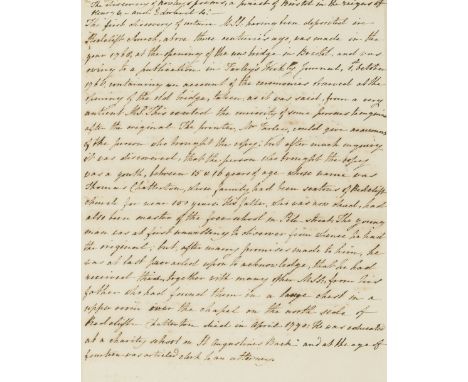 The discovery of Rowley's poems, a priest of Bristol in the reigns of
Henry 6 and Edward 4.
The first discovery of certain MSS having been deposited in
Redclift church, above three centuries ago, was made in the
year 1768, at the opening of the new bridge in Bristol, and was
owing to a publication in Farley's Journal, 1st October
1768, containing an account of the ceremonies observed at the
opening of the old bridge, taken, as it was said, from a very
antient MS. This excited the curiosity of some persons to enquire
after the original. The printer, Mr Farley, could give no account
of the person who brought the copy; but after much enquiry
it was discovered, that the person who brought the copy
was a youth, between 15 & 16 years of age whose name was
Thomas Chatterton, whose family had been sextons of Redclift
church for near 150 years. His father, who was now dead, had
also been master of the free-school in Pile-street. The young
man was at first unwilling to discover from whence he had
the original; but, after many promises made to him, he
was at last prevailed upon to acknowledge, that he had
received this, together with many other MSS, from his
father who had found them in a large chest in a
upper room over the chapel on the north side of
Redclift. Chatterton died in April 1770. He was educated
at a charity school on St Augustines Back and at the age of
fourteen was articled clerk to an attorney